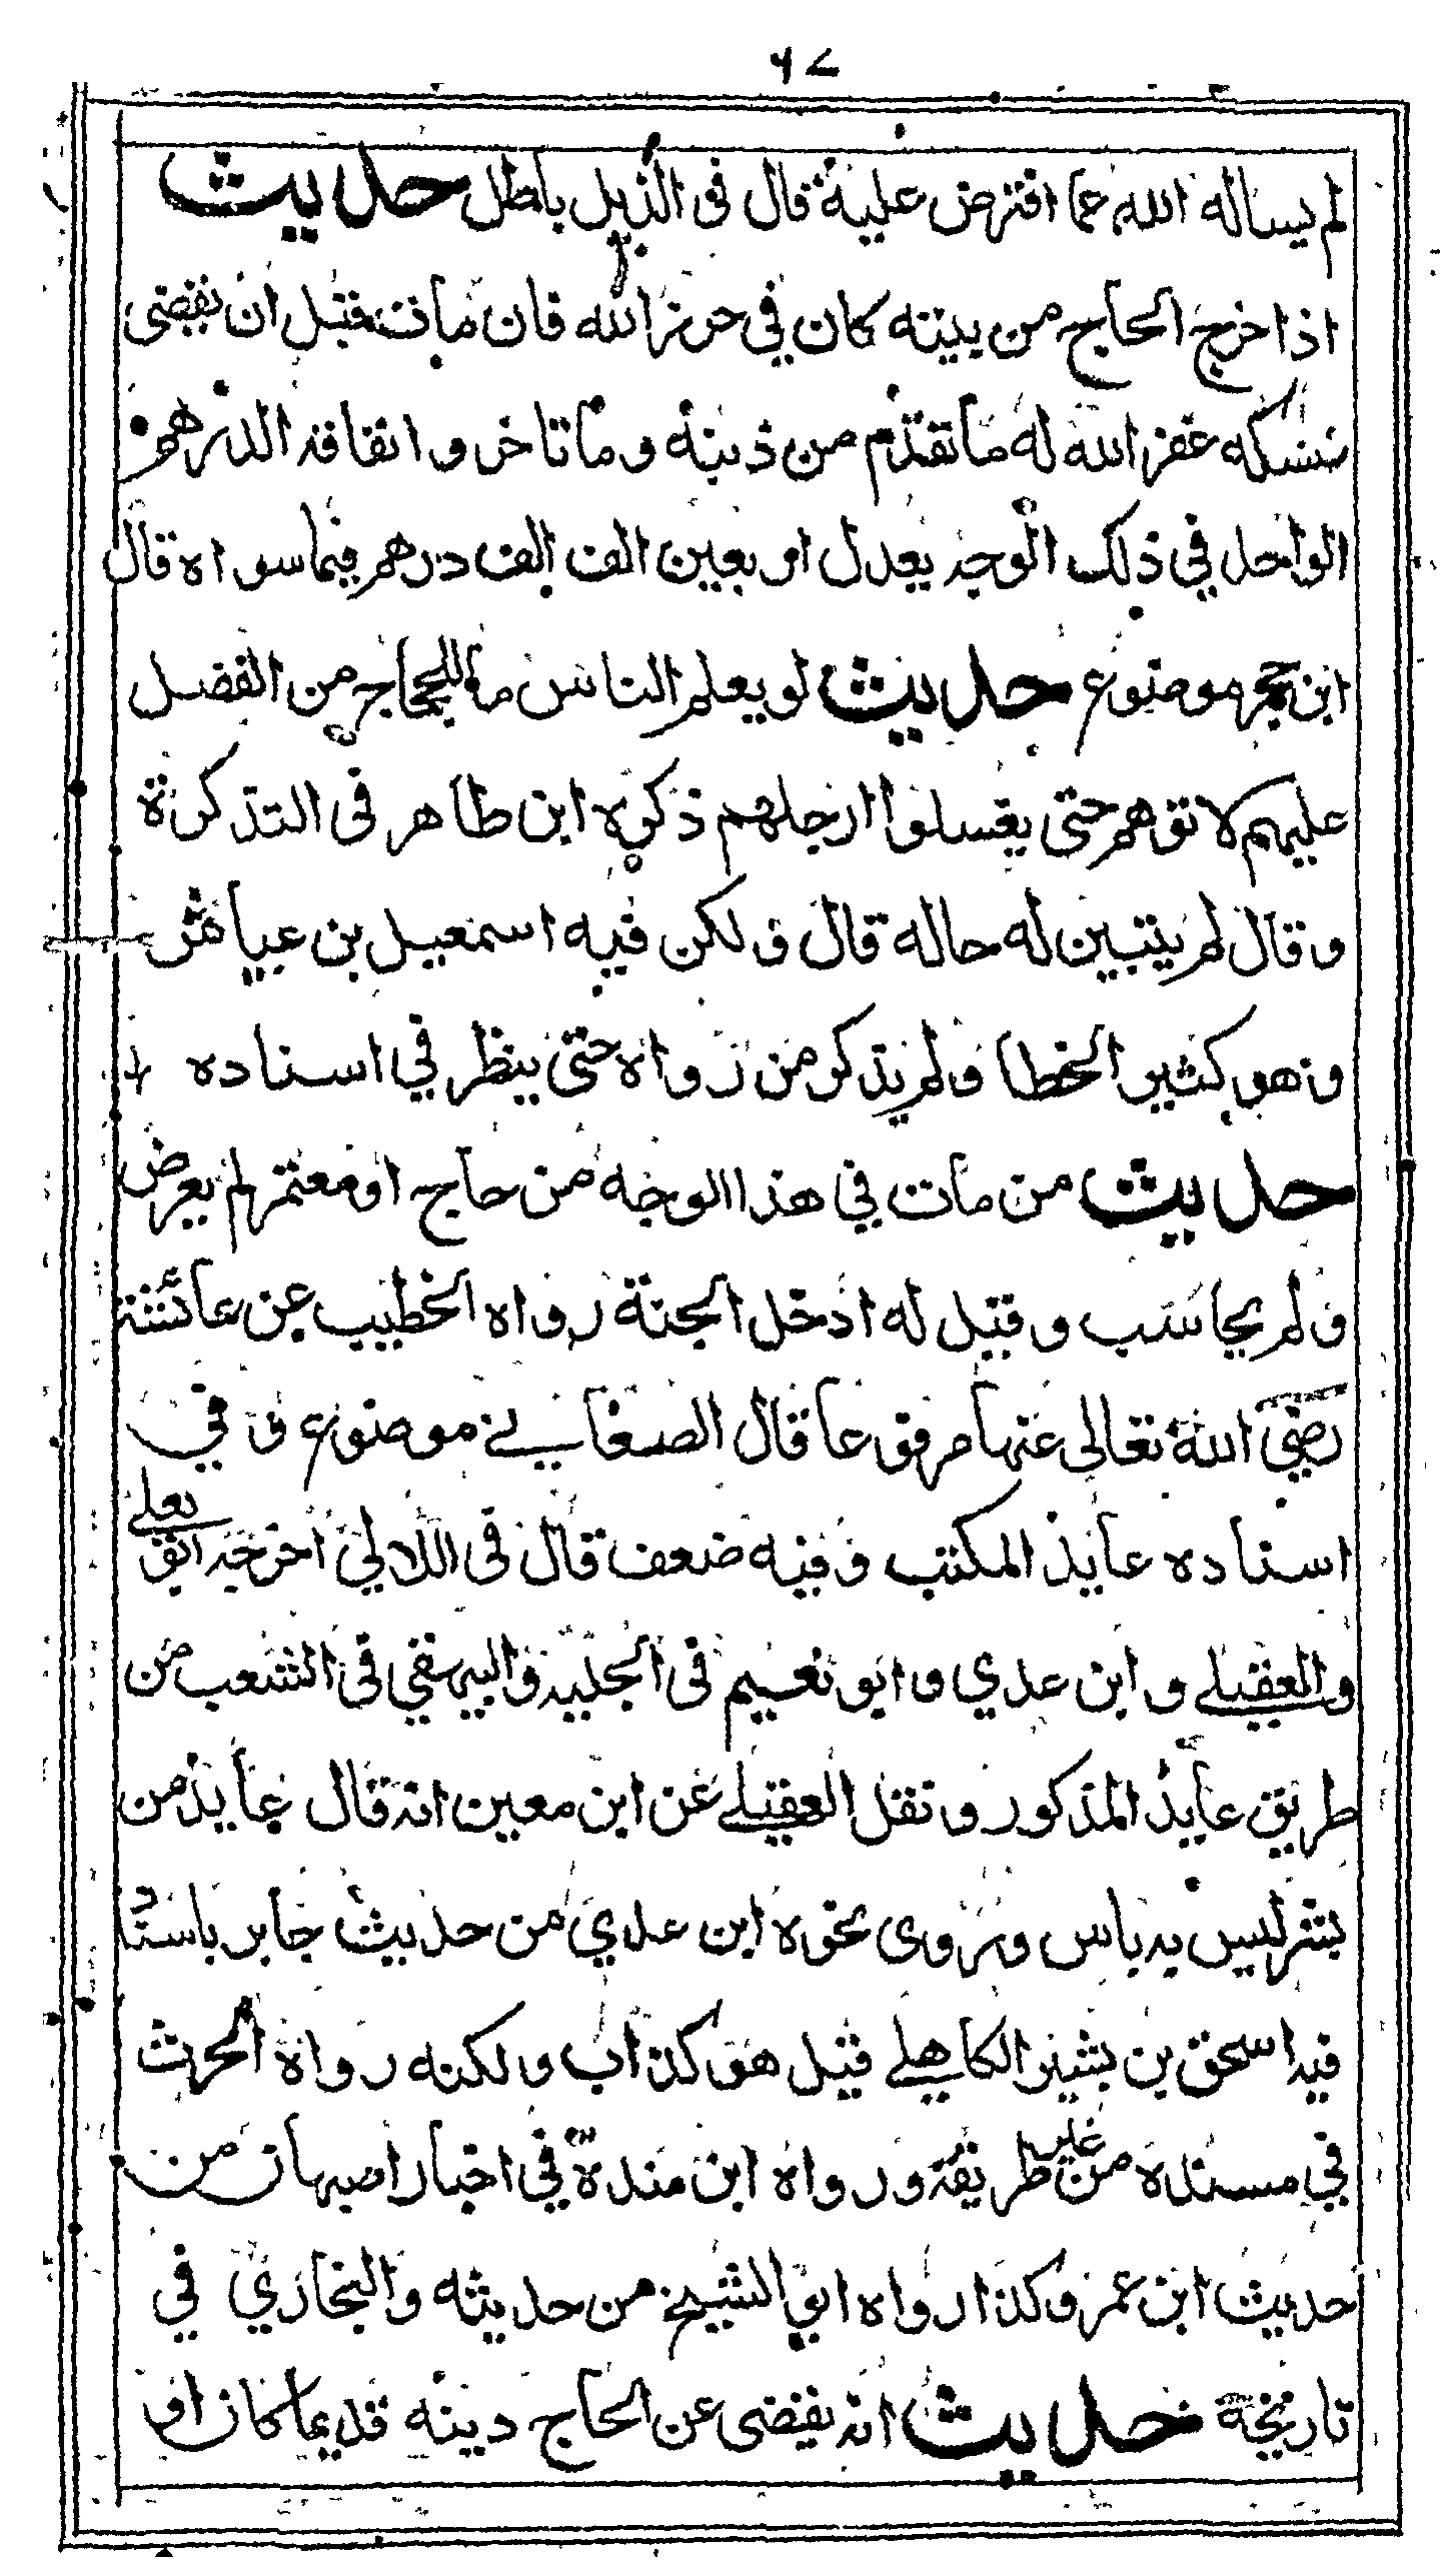 ٦٧
لم يساله الله عما افترض عليه قال فى الذيل باطل حديث
اذا خرج الحاج من بيته كان في حرز الله فان مات قبل ان يقضى
نسكه غفر الله له ما تقدم من ذنبه وما تاخر وانفاقه الدرهم
الواحد في ذلك الوجه يعدل اربعين الف الف درهم فيما سواه قال
ابن حجر موضوع حديث لو يعلم الناس ما للحجاج من الفضل
عليهم لاتوهم حتى يغسلوا ارجلهم ذكره ابن طاهر فى التذكرة
وقال لم يتبين له حاله قال ولكن فيه اسمعيل بن عياش
وهو كثير الخطا ولم يذكر من رواه حتى ينظر في اسناده
حديث من مات في هذا الوجه من حاج او معتمر لم يعرض
ولم يحاسب وقيل له ادخل الجنة رواه الخطيب عن عائشة
رضي الله تعالى عنها مرفوعا قال الصغاني موضوع وفي
اسناده عايذ المكتب وفيه ضعف قال فى اللالي اخرجه ابو يعلى
والعقيلي وابن عدي وابو نعيم فى الحليه والبيهقي فى الشعب من
طريق عايذ المذكور ونقل العقيلي عن ابن معين انه قال عايذ من
بشر ليس به باس وروى نحوه ابن عدي من حديث جابر باسناد
فيه اسحق بن بشير الكاهلي قيل هو كذاب ولكنه رواه الحرث
في مسنده من غير طريقه ورواه ابن مندة في اخبار اصبهان من
حديث ابن عمر وكذا رواه ابو الشيخ من حديثه والبخاري في
تاريخه حديث انه يقضى عن الحاج دينه قديما كان او